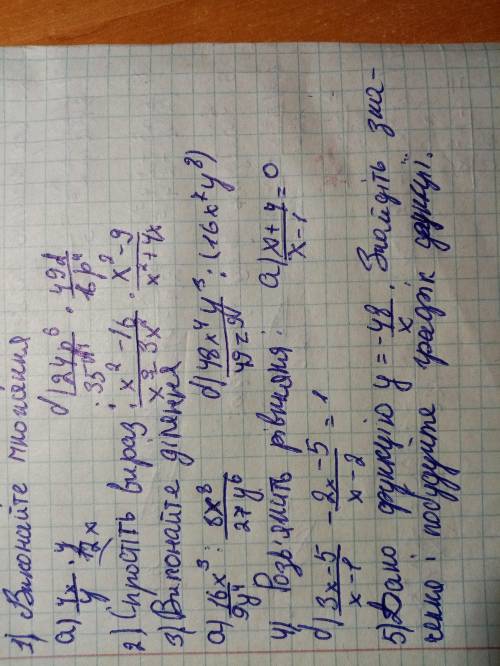 1) Виконайте множення
а) 4x/y · y/12x б) 24p⁶/35 · 49d/16p⁴
2) Спростіть вираз: x²-16/x³-3x² · x²-9/x²+4x
3) Виконайте ділення
а) 16x³/9y⁴ : 8x⁸/27y⁶ б) 48x⁴y⁵/49 : (16x²y³)
4) Розв'яжіть рівняння: а) x+4/x-1 = 0
б) 3x-5/x-1 - 2x-5/x-2 = 1
5) Дано функцію y = -48/x. Знайдіть зна-
чення і побудуйте графік функції.